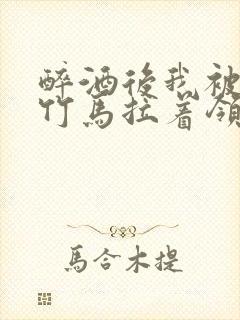 醉酒後我被
竹馬拉着領
馬合木提